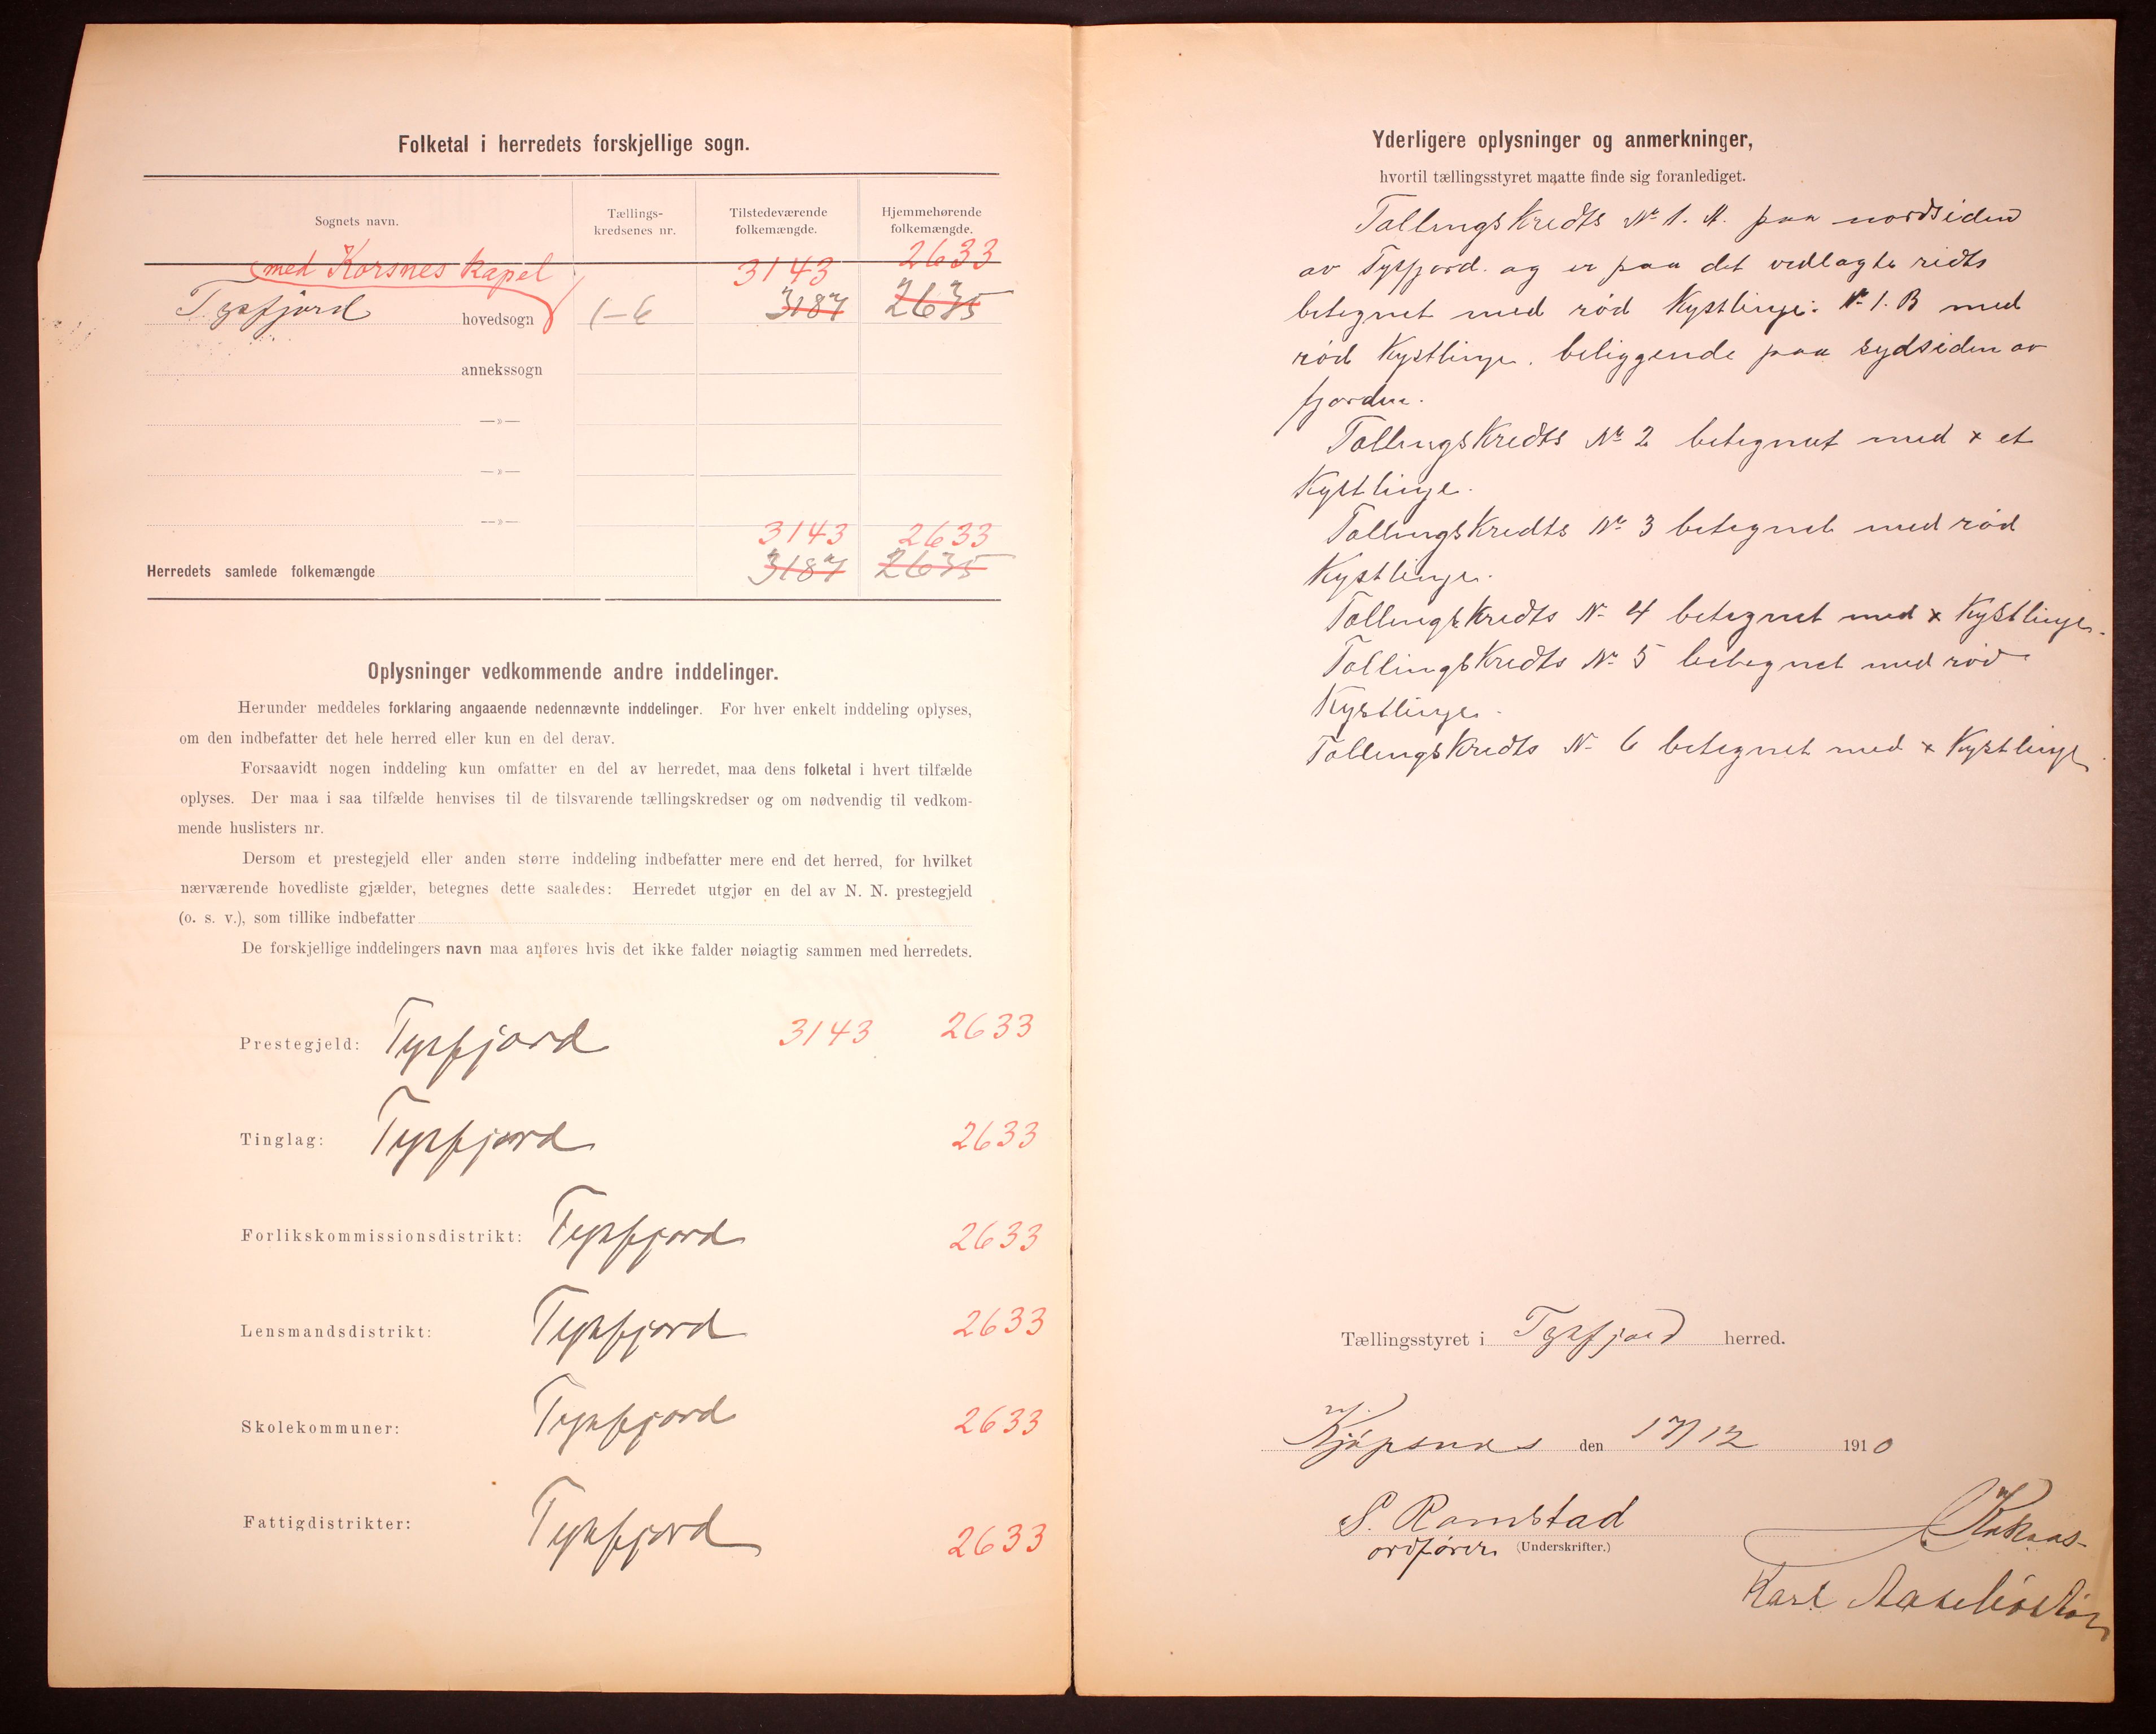 Folketal i herredets forskjellige sogn.
Sognets navn.
Tællings-
kredsenes nr.
Tilstedeværende
folkemængde.
Hjemmehørende
folkemængde.
med Korsnes kapel 3143 2633
Tysfjord hovedsogn 1-6 3187 2635
annekssogn
—»—
—»—
—»—
3143 2633
Herredets samlede folkemængde 3187 2635
Oplysninger vedkommende andre inddelinger.
Herunder meddeles forklaring angaaende nedennævnte inddelinger. For hver enkelt inddeling oplyses,
om den indbefatter det hele herred eller kun en del derav.
Forsaavidt nogen inddeling kun omfatter en del av herredet, maa dens folketal i hvert tilfælde
oplyses. Der maa i saa tilfælde henvises til de tilsvarende tællingskredser og om nødvendig til vedkom-
mende huslisters nr.
Dersom et prestegjeld eller anden større inddeling indbefatter mere end det herred, for hvilket
nærværende hovedliste gjælder, betegnes dette saaledes: Herredet utgjør en del av N. N. prestegjeld
(o. s. v.), som tillike indbefatter
De forskjellige inddelingers navn maa anføres hvis det ikke falder nøiagtig sammen med herredets.
Prestegjeld: Tysfjord 3143 2633
Tinglag: Tysfjord 2633
Forlikskommissionsdistrikt: Tysfjord 2633
Lensmandsdistrikt: Tysfjord 2633
Skolekommuner: Tysfjord 2633
Fattigdistrikter: Tysfjord 2633
Yderligere oplysninger og anmerkninger,
hvortil tællingsstyret maatte finde sig foranlediget.
Tællingskredts Nr 1. A. paa nordsiden
av Tysfjord. og er paa det vedlagte ridts
betegnet med rød Kystlinje: Nr 1. B med
rød Kystlinje. beliggende paa sydsiden av
fjorden.
Tællingskredts Nr 2 betegnet med x et
Kystlinje.
Tællingskredts Nr 3 betegnet med rød
Kystlinje.
Tællingskredts Nr 4 betegnet med x Kystlinje.
Tællingskredts Nr 5 betegnet med rød
Kystlinje.
Tællingskredts Nr 6 betegnet med x Kystlinje.
Tællingsstyret i Tysfjord herred.
Kjøpsnes den 17/12 1910
S. Ramstad
ordfører (Underskrifter.)
Karl